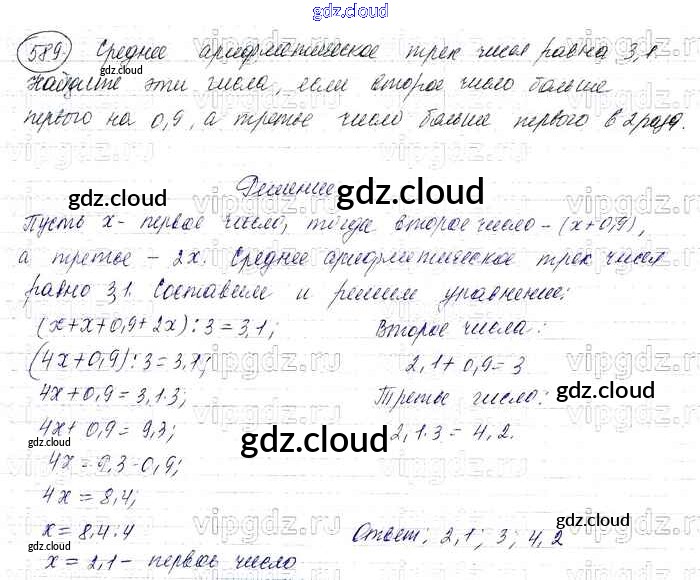 gdz.cloud
589. Среднее арифметическое трех чисел равно 3,1.
Найдите эти числа, если второе число больше
первого на 0,9, а третье число больше первого в 2 раза.
Решение
Пусть x - первое число, тогда второе число - (x+0,9),
а третье - 2x. Среднее арифметическое трех чисел
равно 3,1. Составим и решим уравнение:
(x+x+0,9+2x):3=3,1;
(4x+0,9):3=3,1;
4x+0,9=3,1·3;
4x+0,9=9,3;
4x=9,3-0,9;
4x=8,4;
x=8,4:4
x=2,1- первое число
Второе число:
2,1+0,9=3
Третье число:
2,1·3=4,2.
Ответ: 2,1; 3; 4,2
gdz.cloud
gdz.cloud
gdz.cloud
gdz.cloud
gdz.cloud
gdz.cloud
gdz.cloud
gdz.cloud
gdz.cloud
vipgdz.ru
vipgdz.ru
vipgdz.ru